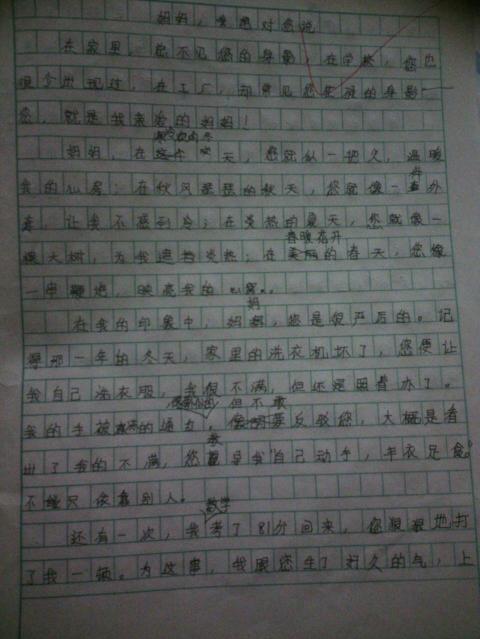 妈妈，我想对您说
在家里，您不见您的身影，在学校，您也
很少出现过，在工厂，却常见您疲惫的身影——
您，就是我亲爱的妈妈！
寒冷的冬
妈妈，在这个 天，您就似一把火，温暖
我的心房；在秋风瑟瑟的秋天，您就像一件外
套，让我不感到冷；在炎热的夏天，您就像一
棵大树，为我遮挡炎热；在美丽的春天，您像
春暖花开
一串 ，映亮我的心窝。
在我的印象中，妈妈，您是很严厉的。记
得那一年的冬天，家里的洗衣机坏了，您便让
我自己洗衣服，我很不满，但还是照着办了。
但不敢
我的手被 的通红， 反驳您，大概是看
出了我的不满，您教导我"自己动手，丰衣足食"。
不能只依靠别人。
数学
还有一次，我考了81分回来，您狠狠地打
了我一顿。为这事，我跟您生了好久的气，上